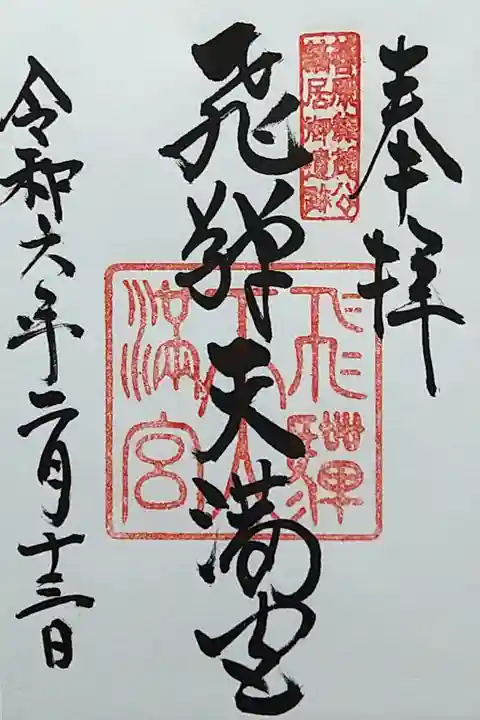 奉拝
菅原兼茂公
謫居御遺跡
飛騨天満宮
飛驒
天
満宮
令和六年二月十三日